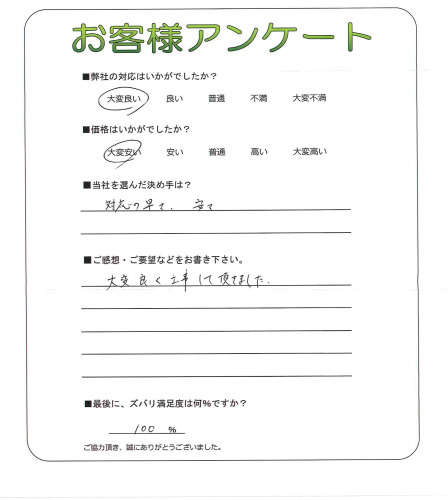 お客様アンケート
■弊社の対応はいかがでしたか？
大変良い 良い 普通 不満 大変不満
■価格はいかがでしたか？
大変安い 安い 普通 高い 大変高い
■当社を選んだ決め手は？
対応の早さ、安さ
■ご感想・ご要望などをお書き下さい。
大変良く工事して頂きました.
■最後に、ズバリ満足度は何％ですか？
100 %
ご協力頂き、誠にありがとうございました。